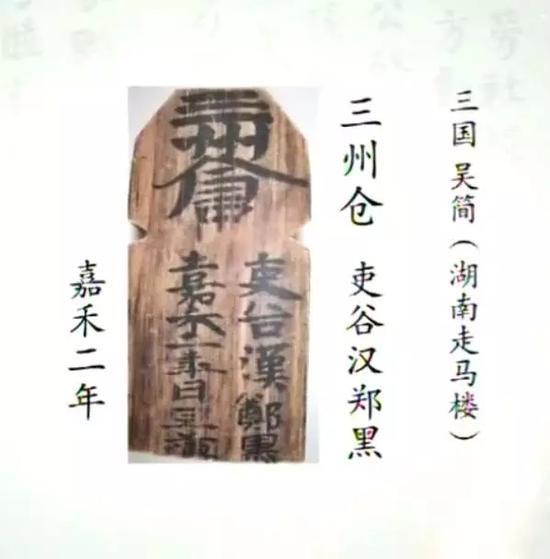 三国 吴简(湖南走马楼)
三州仓 吏谷汉郑黑
三州倉
吏谷漢鄭黑
嘉禾二年
嘉禾二年